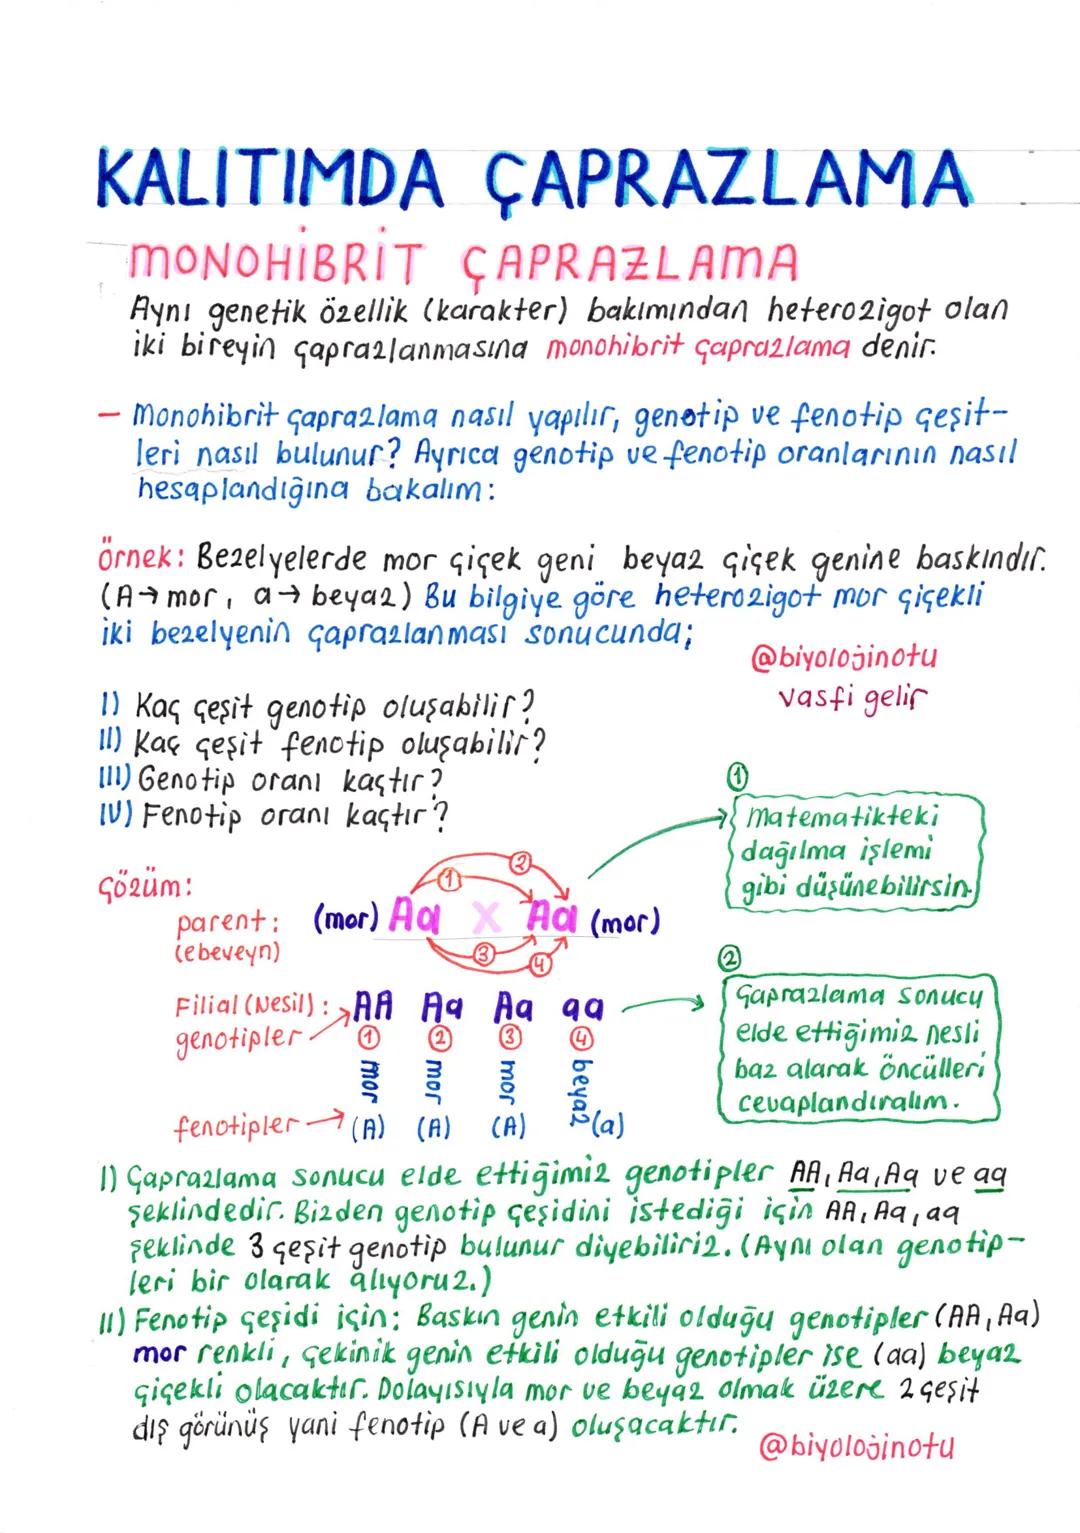 KALITIMDA ÇAPRAZLAMA
MONOHİBRİT ÇAPRAZLAMA
Aynı genetik özellik (karakter) bakımından heterozigot olan
iki bireyin çaprazlanmasına monohibrit çaprazlama denir.
- Monohibrit çaprazlama nasıl yapılır, genotip ve fenotip çeşit-
leri nasıl bulunur? Ayrıca genotip ve fenotip oranlarının nasıl
hesaplandığına bakalım:
örnek: Bezelyelerde mor çiçek geni beyaz çiçek genine baskındır.
(A→mor, a→beyaz) Bu bilgiye göre heterozigot mor çiçekli
iki bezelyenin çaprazlanması sonucunda;
@biyolojinotu
vasfi gelir
I) Kaç çeşit genotip oluşabilir?
II) Kaç çeşit fenotip oluşabilir?
III) Genotip oranı kaçtır?
IV) Fenotip oranı kaçtır?
1
Matematikteki
dağılma işlemi
gibi düşünebilirsin.
Çözüm:
1 2
parent: (mor) Aa X Aa (mor)
(ebeveyn)
3 4
2
Çaprazlama sonucu
elde ettiğimiz nesli
baz alarak öncülleri
cevaplandıralım.
Filial (Nesil): → AA Aa Aa aa →
genotipler 1 2 3 4
mor mor mor beyaz
fenotipler → (A) (A) (A) (a)
I) Çaprazlama sonucu elde ettiğimiz genotipler AA, Aa, Aa ve aa
şeklindedir. Bizden genotip çeşidini istediği için AA, Aa, aa
şeklinde 3 çeşit genotip bulunur diyebiliriz. (Aynı olan genotip-
leri bir olarak alıyoruz.)
II) Fenotip çeşidi için: Baskın genin etkili olduğu genotipler (AA, Aa)
mor renkli, çekinik genin etkili olduğu genotipler ise (aa) beyaz
çiçekli olacaktır. Dolayısıyla mor ve beyaz olmak üzere 2 çeşit
dış görünüş yani fenotip (A ve a) oluşacaktır.
@biyolojinotu